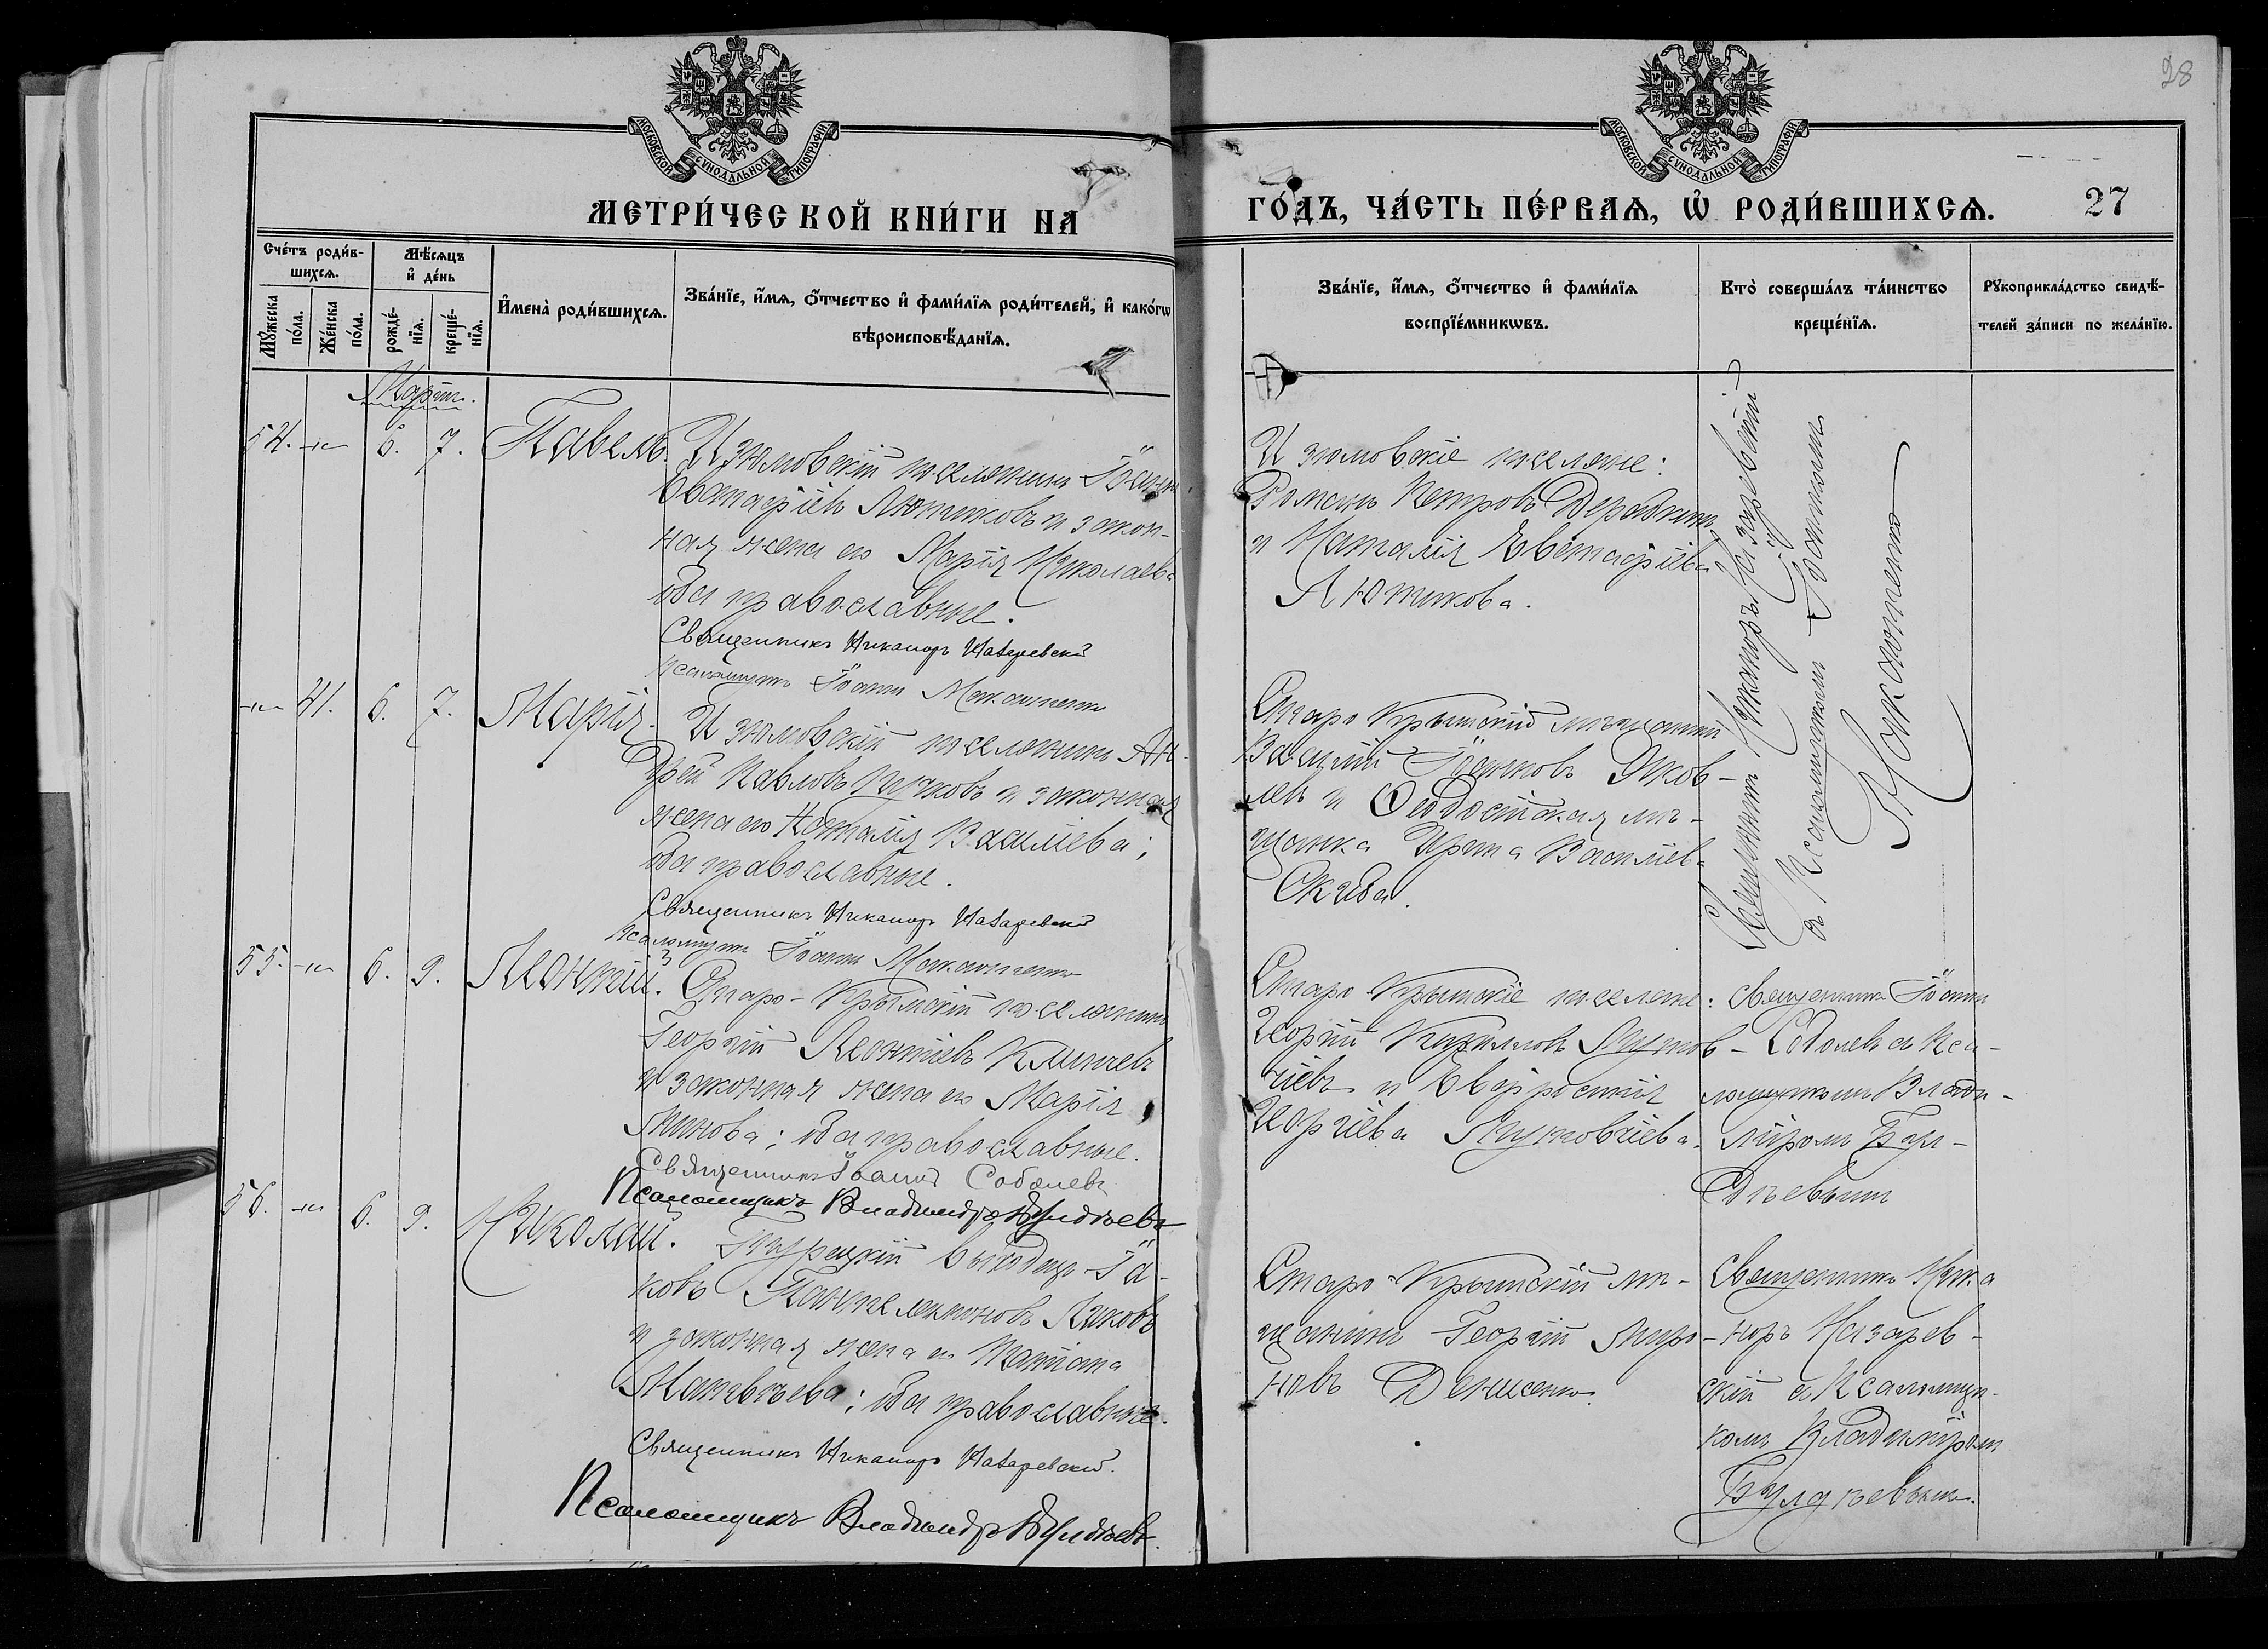 28
МОСКОВСКОЙ СѴНОДАЛЬНОЙ ТИПОГРАФІИ
МОСКОВСКОЙ СѴНОДАЛЬНОЙ ТИПОГРАФІИ
МЕТРИ́ЧЕСКОЙ КНИ́ГИ НА
ГО́ДЪ, ЧА́СТЬ ПЕ́РВАѦ, Ѡ҆ РОДИ́ВШИХСѦ.
27
Сче́тъ роди́в-
шихсѧ.
Мꙋ́жеска
по́ла.
Же́нска
по́ла.
Мѣ́сѧцъ
и҆ де́нь
рожде́-
нїѧ.
креще́-
нїѧ.
И҆мена̀ роди́вшихсѧ.
Зва́нїе, и҆́мѧ, ѻ҆́тчество и҆ фами́лїѧ роди́телей, и҆ како́гѡ
вѣроисповѣ́данїѧ.
Зва́нїе, и҆́мѧ, ѻ҆́тчество и҆ фами́лїѧ
воспрїе́мникѡвъ.
Кто̀ соверша́лъ та́инство
креще́нїѧ.
Рꙋкоприкла́дство свидѣ́-
телей за́писи по жела́нїю.
Мартъ.
54. -"- 6. 7. Павелъ.
Изюмовскій поселянинъ Іоаннъ
Евстафіевъ Лютиковъ и закон-
ная жена его Марія Николаева
оба православные.
Священникъ Никаноръ Назаревскій
Псаломщикъ Іоаннъ
Изюмовскіе поселяне:
Романъ Петровъ
и Наталія Евстафіева
Лютикова.
Священникъ Никаноръ Назаревскій
съ Псаломщикомъ Іоанномъ
-"- 41. 6. 7. Марія.
Изюмовскій поселянинъ Ан-
дрей Павловъ и законная
жена его Наталія Василіева;
оба православные.
Священникъ Никаноръ Назаревскій
Псаломщикъ Іоаннъ
Старо-Крымскій мѣщанинъ
Василій Іоанновъ Яков-
левъ и Ѳеодосійская мѣ-
щанка Ирина Василіева
55. -"- 6. 9. Леонтій.
Старо-Крымскій поселянинъ
Георгій Леонтіевъ Клинчевъ
и законная жена его Марія
Минова; оба православные.
Священникъ Іоаннъ Соболевъ
Псаломщикъ Владимиръ Булдѣевъ
Старо-Крымскіе поселяне:
Георгій Кирилловъ
и Евфросинія
Георгіева
Священникъ Іоаннъ
Соболевъ съ Пса-
ломщикомъ Влади-
міромъ Бул-
дѣевымъ
56. -"- 6. 9. Николай.
Турецкій выходецъ Іа-
ковъ Пантелеимоновъ
и законная жена его
Матвѣева; оба православные.
Священникъ Никаноръ Назаревскій.
Псаломщикъ Владимиръ Булдѣевъ.
Старо-Крымскій мѣ-
щанинъ Георгій Миро-
новъ Денисенко.
Священникъ Ника-
норъ Назарев-
скій съ Псаломщи-
комъ Владиміромъ
Булдѣевымъ.